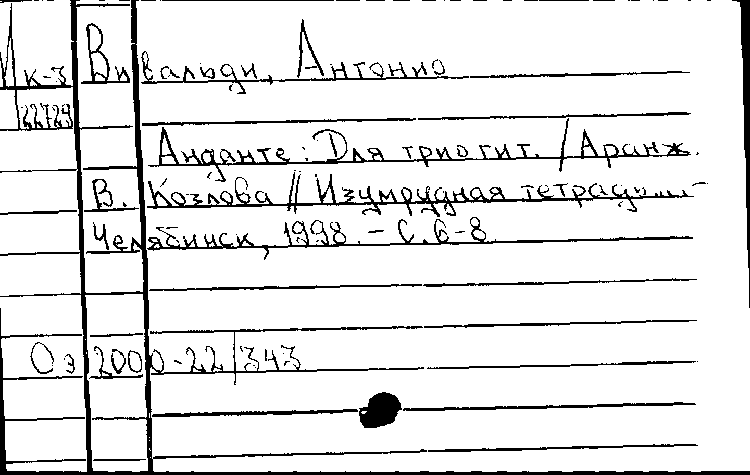 Ик-3 Вивальди, Антонио
22729
Анданте: Для трио гит. / Аранж.
В. Козлова // Изумрудная тетрадь...-
Челябинск, 1998. - С. 6-8
Оэ 2000-22/343